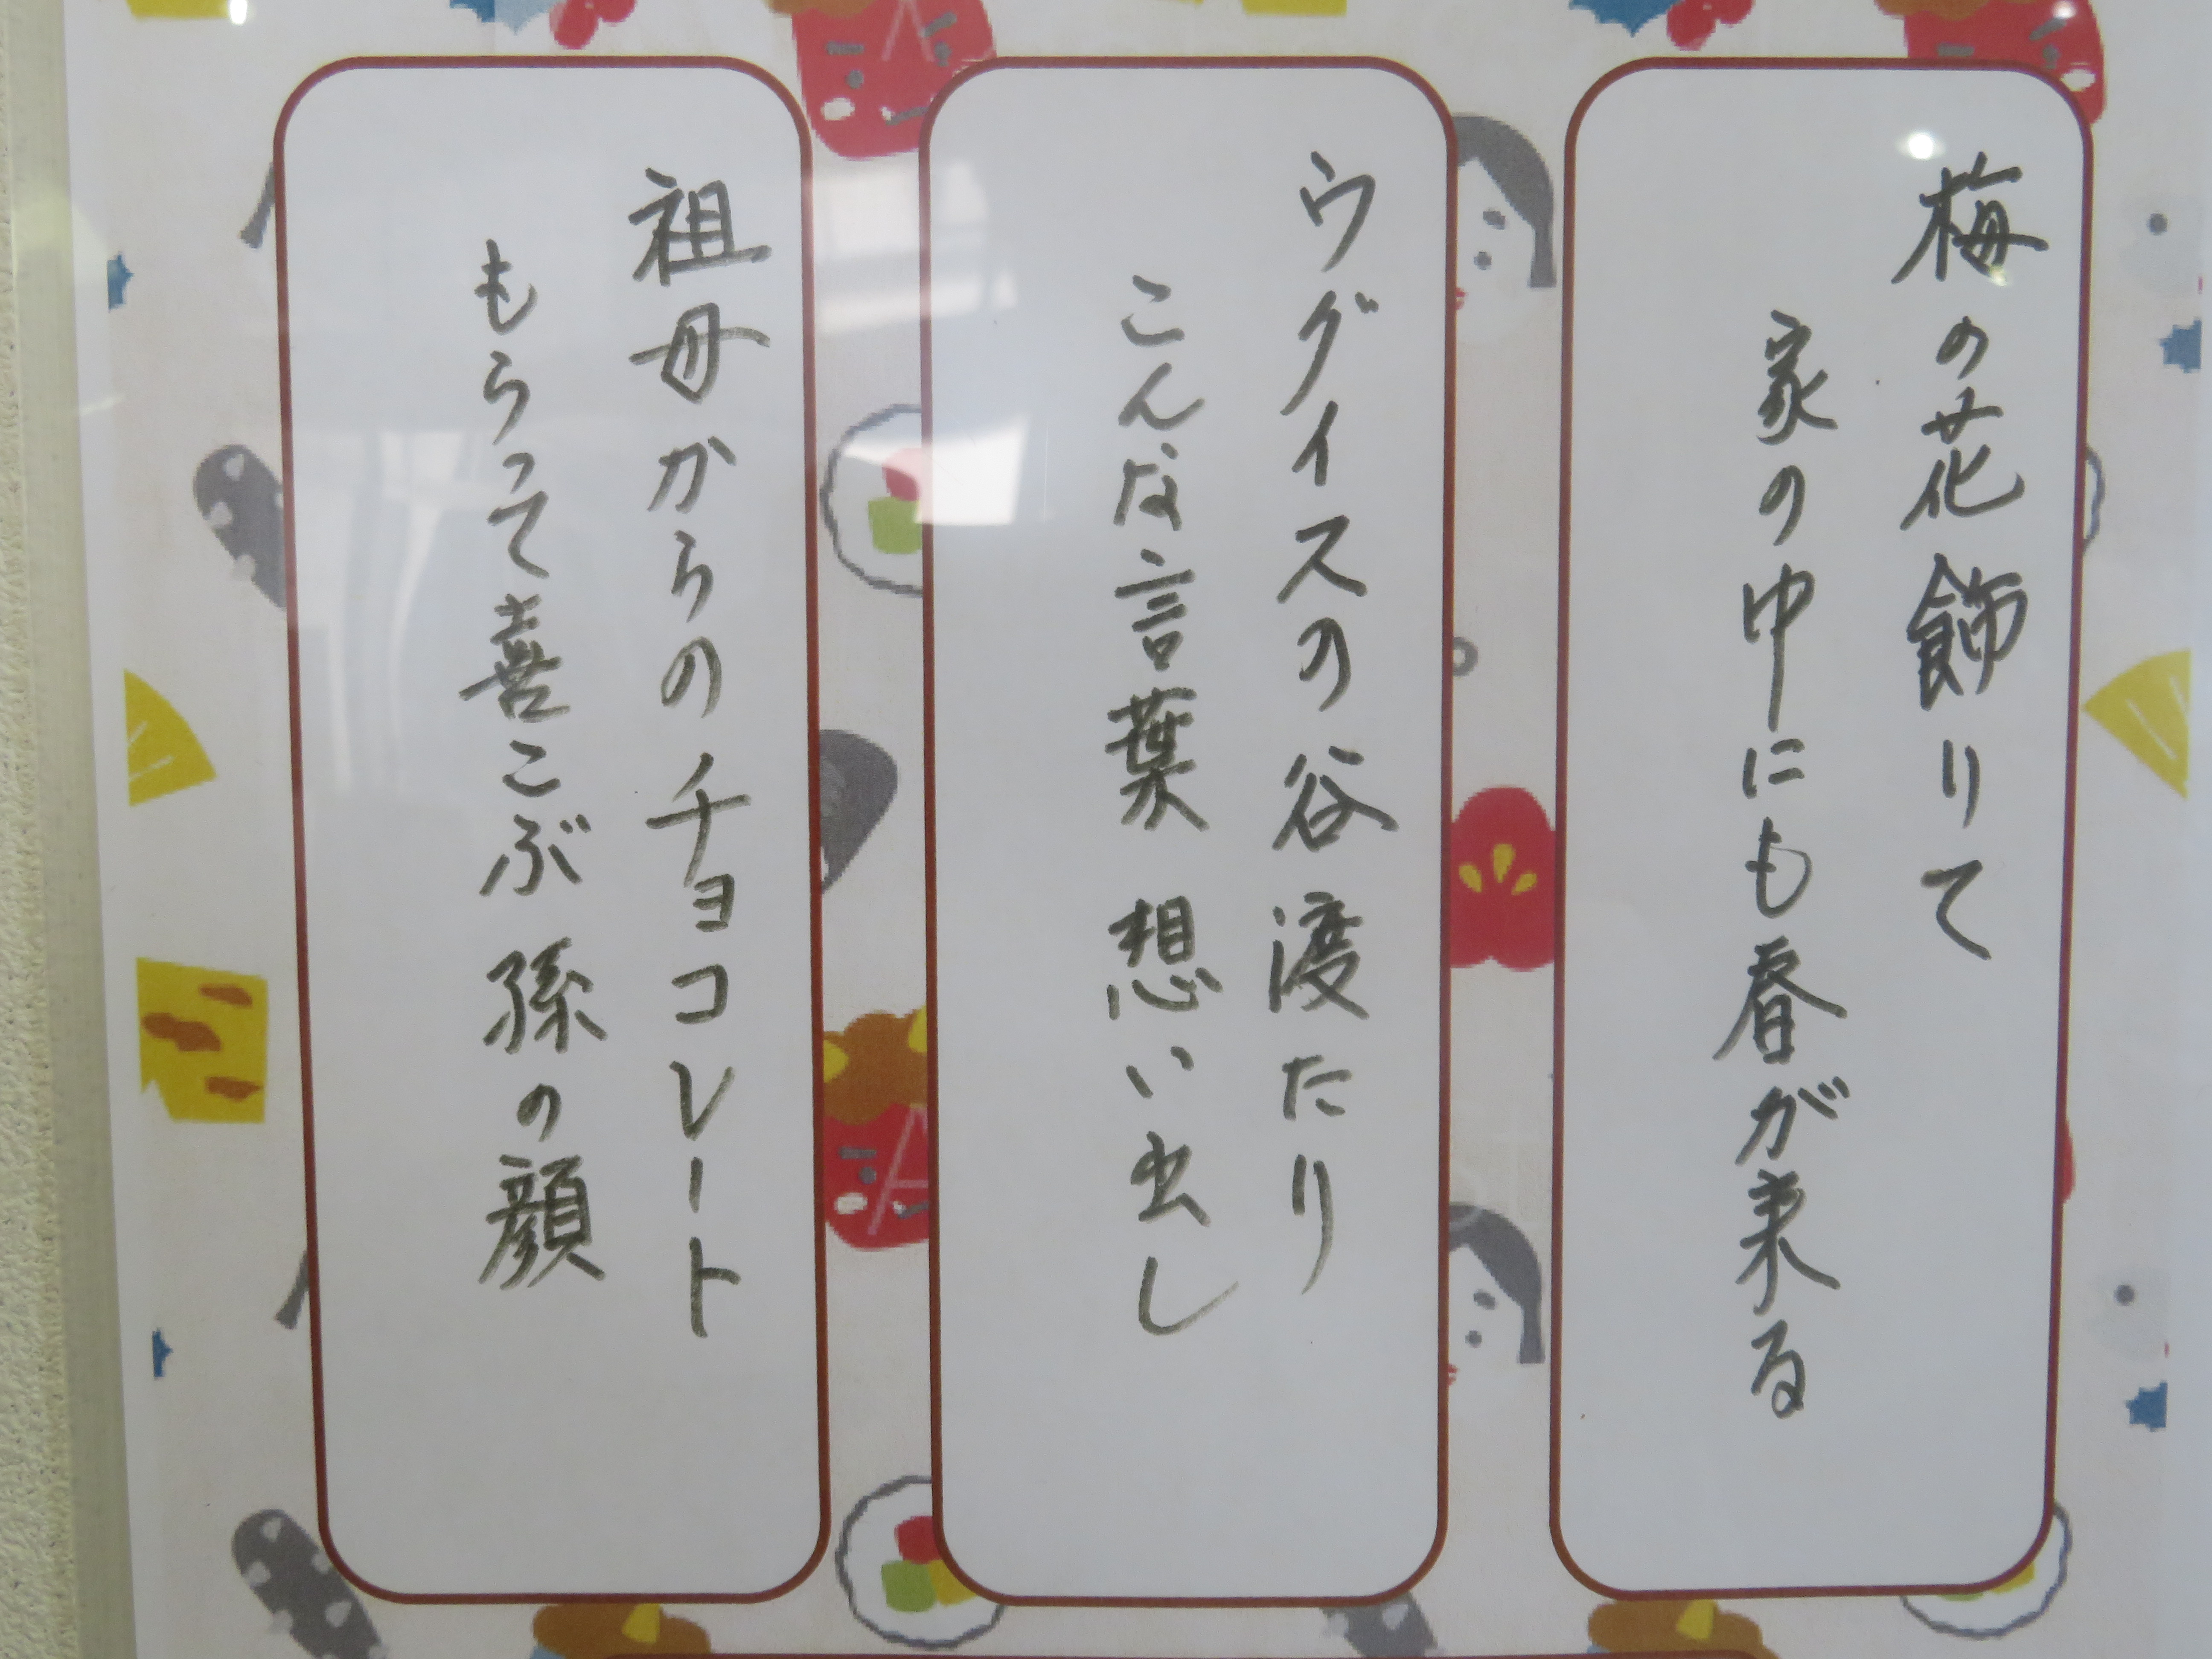 梅の花飾りて
家の中にも春が来る
ウグイスの谷渡たり
こんな言葉 想い出し
祖母からのチョコレート
もらって喜こぶ孫の顔